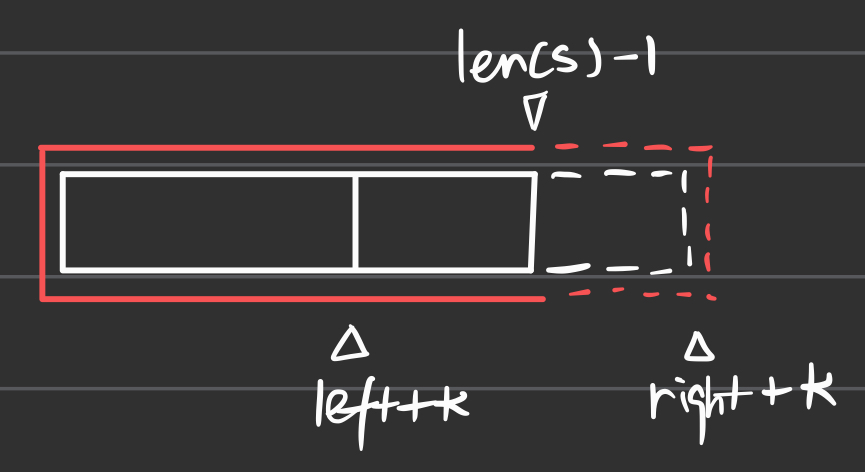 len(s)-1
left+k
right+k